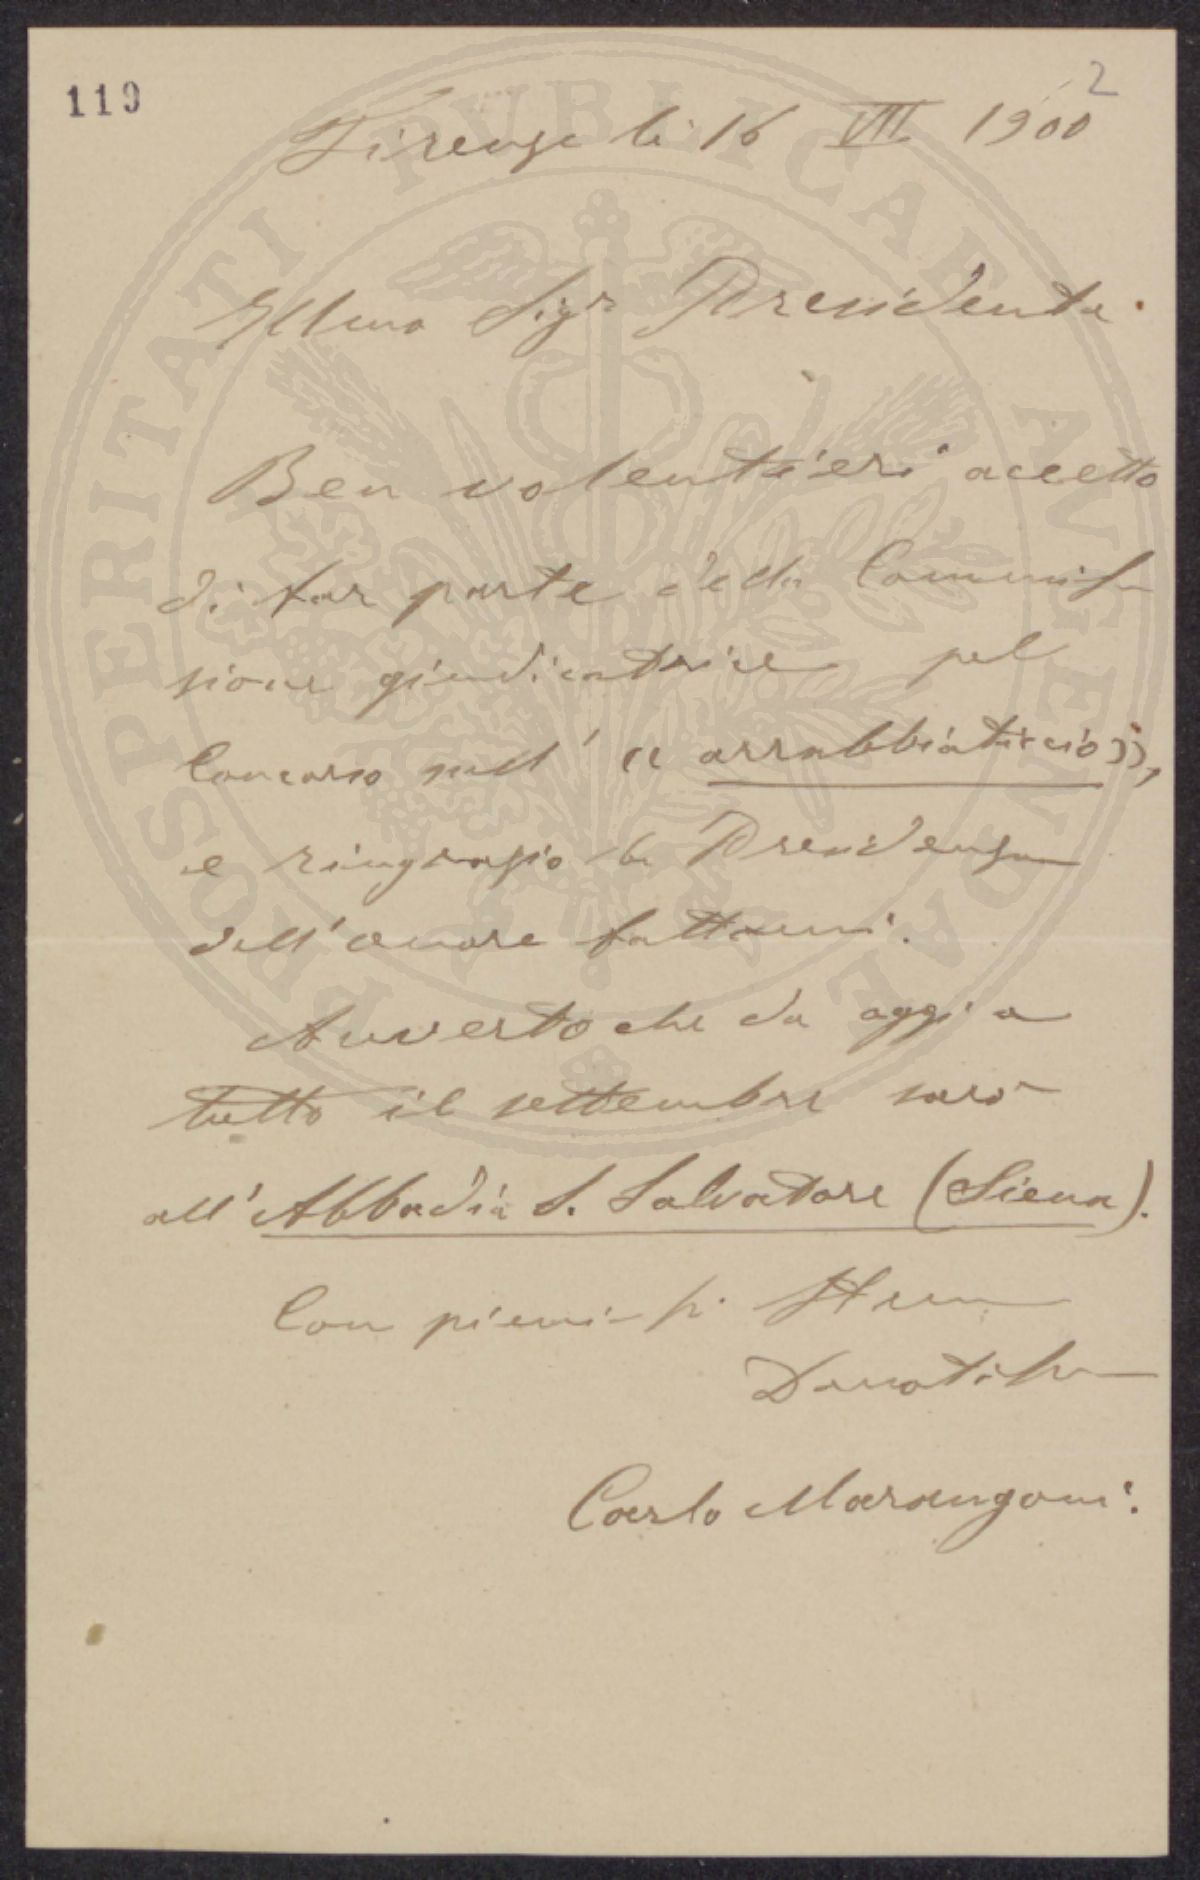 119
2
Firenze li 16 VIII 1900
Illmo Sigr Presidente.
Ben volentieri accetto
di far parte della Commis-
sione giudicatrice pel
Concorso sull' « arrabbiaticcio »,
e ringrazio la Presidenza
dell'onore fattomi.
Avverto che da oggi a
tutto il settembre sarò
all'Abbadia S. Salvatore (Siena).
Con pieniss. Stima
Devotiss
Carlo Marangoni.
PROSPERITATI PVBLICAE AVGENDAE